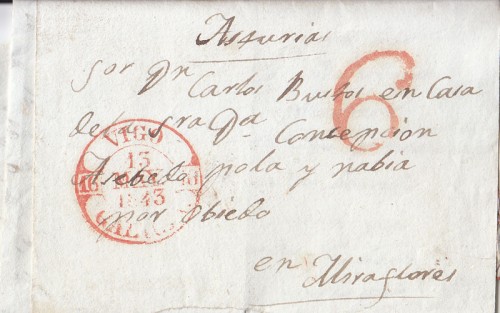 Asturias
Sor Dn Carlos Bustos en Casa
de la Sra Da Concepción
Asebedo pola y nabia
por Obiedo
en Miraflores
6
VIGO
15
1843